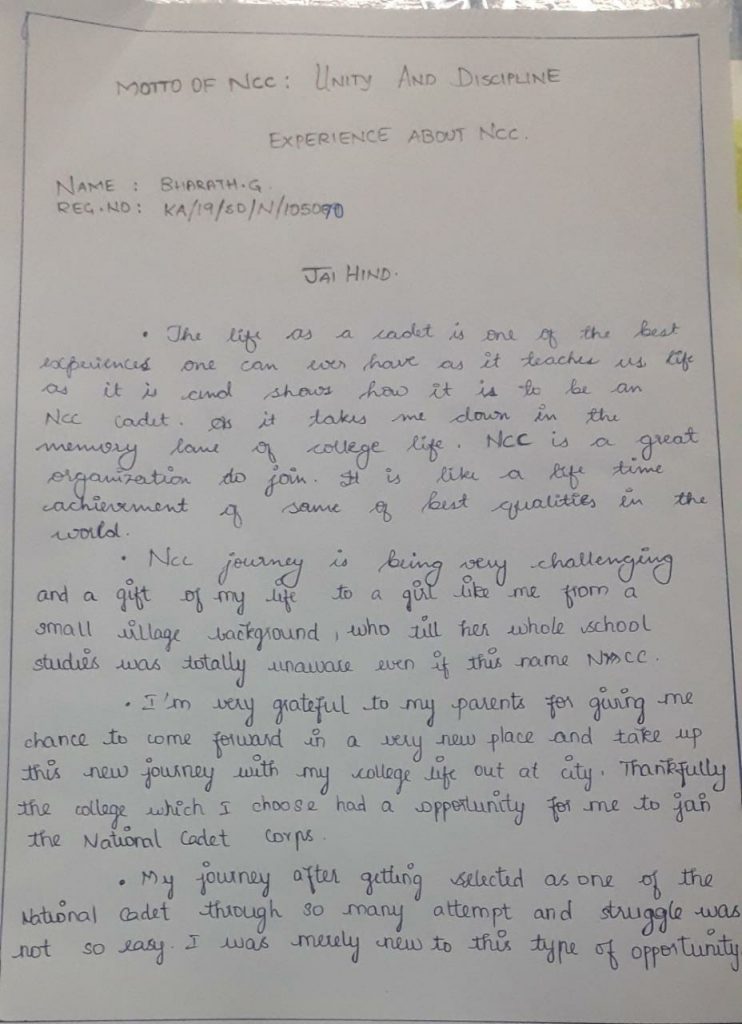 MOTTO OF NCC: UNITY AND DISCIPLINE
EXPERIENCE ABOUT NCC.
NAME : BHARATH.G.
REG.NO: KA/19/SD/N/105090
JAI HIND.
• The life as a cadet is one of the best
experiences one can ever have as it teaches us life
as it is and shows how it is to be an
NCC cadet. as it takes me down in the
memory lane of college life. NCC is a great
organization to join. It is like a life time
achievement of same of best qualities in the
world.
• NCC journey is being very challenging
and a gift of my life to a girl like me from a
small village background, who till her whole school
studies was totally unaware even if this name NCC.
• I'm very grateful to my parents for giving me
chance to come forward in a very new place and take up
this new journey with my college life out at city. Thankfully
the college which I choose had a opportunity for me to join
the National Cadet Corps.
• My journey after getting selected as one of the
National Cadet through so many attempt and struggle was
not so easy. I was merely new to this type of opportunity